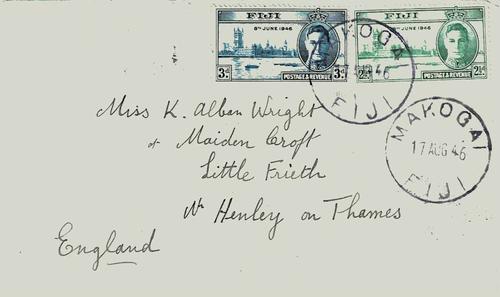 FIJI FIJI
8TH JUNE 1946 8TH JUNE 1946
3D 3D 2½D 2½D
POSTAGE & REVENUE POSTAGE & REVENUE
MAKOGAI
17 AUG 46
FIJI
MAKOGAI
17 AUG 46
FIJI
Miss K. Alban Wright
Maiden Croft
Little Frieth
Nr Henley on Thames
England